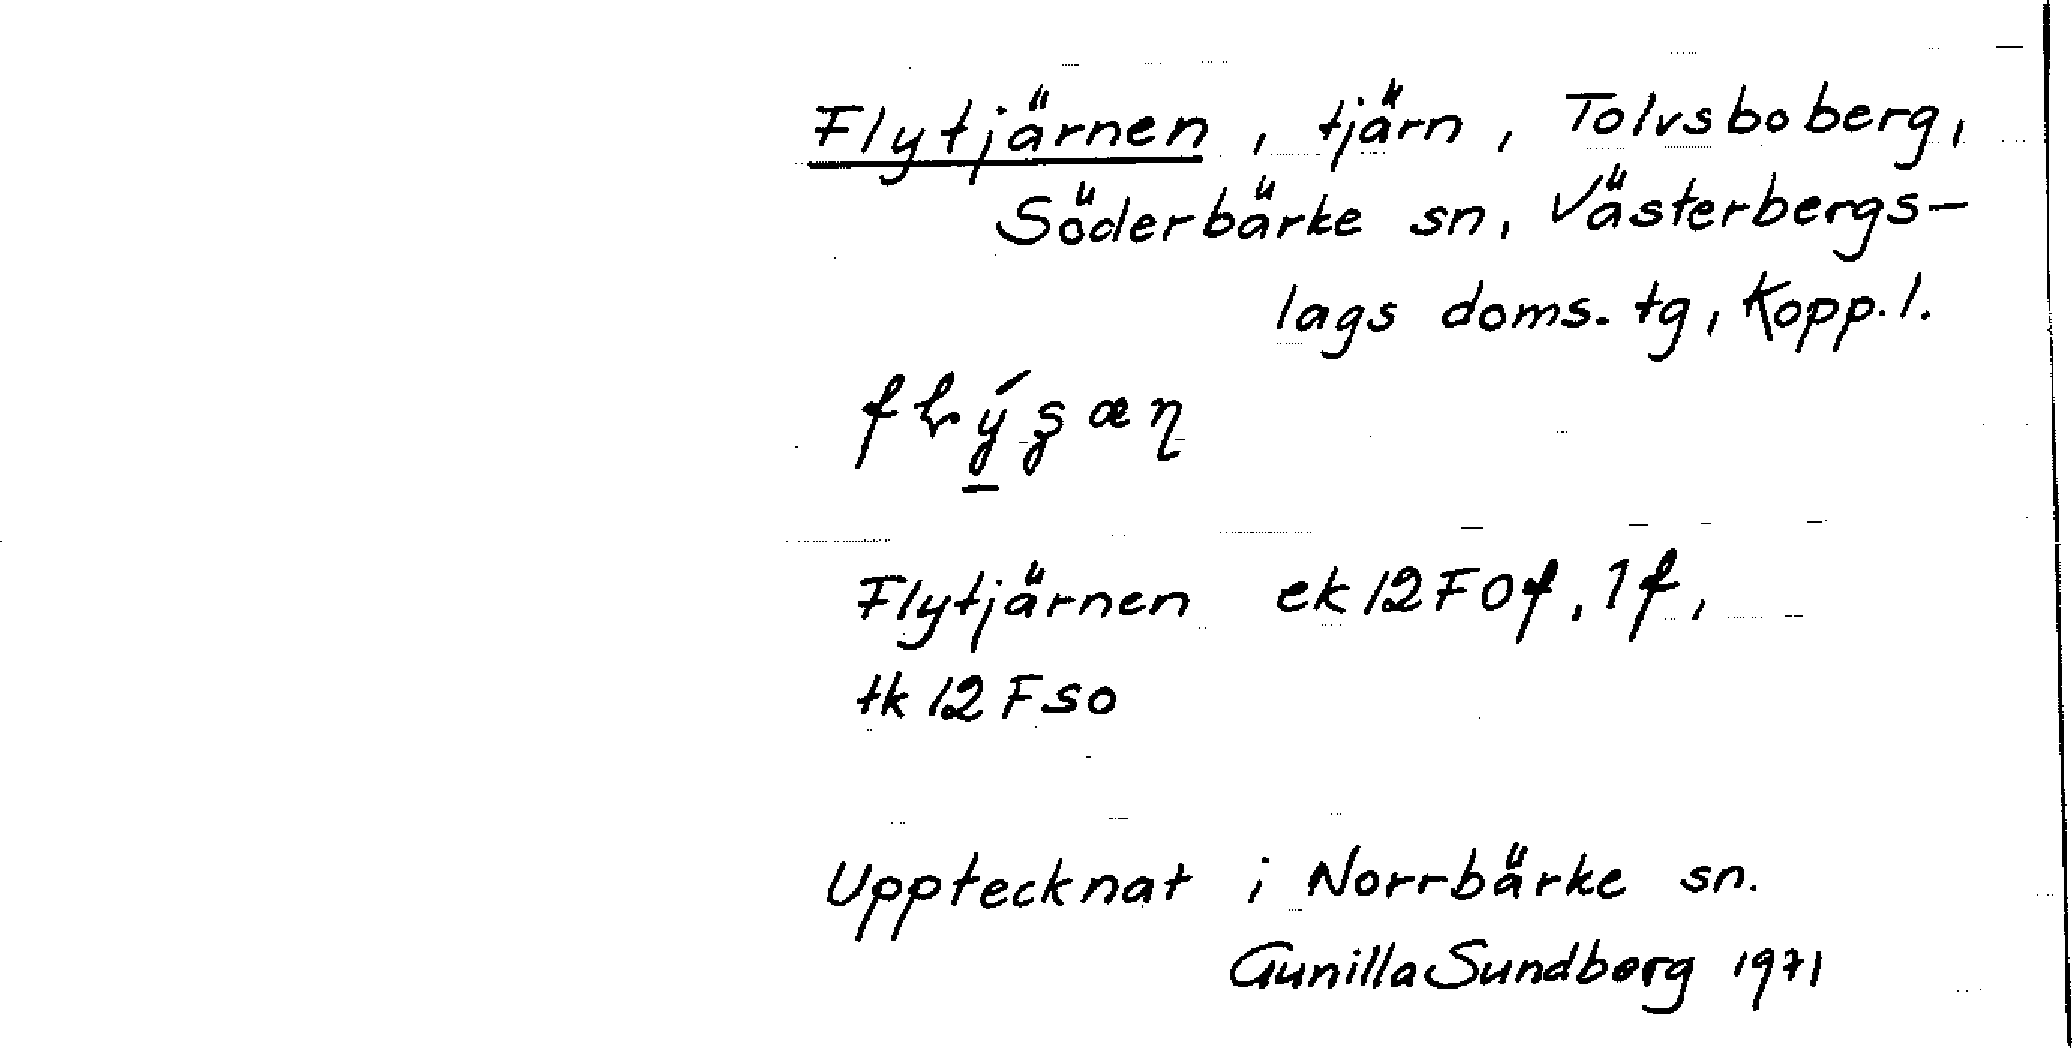 Flytjärnen, tjärn, Tolvsboberg,
Söderbärke sn, Västerbergs-
lags doms. tg, Kopp.l.
Flytjärnen ek 12F0f, 1f,
tk 12Fso
Upptecknat i Norrbärke sn.
Gunilla Sundberg 1971